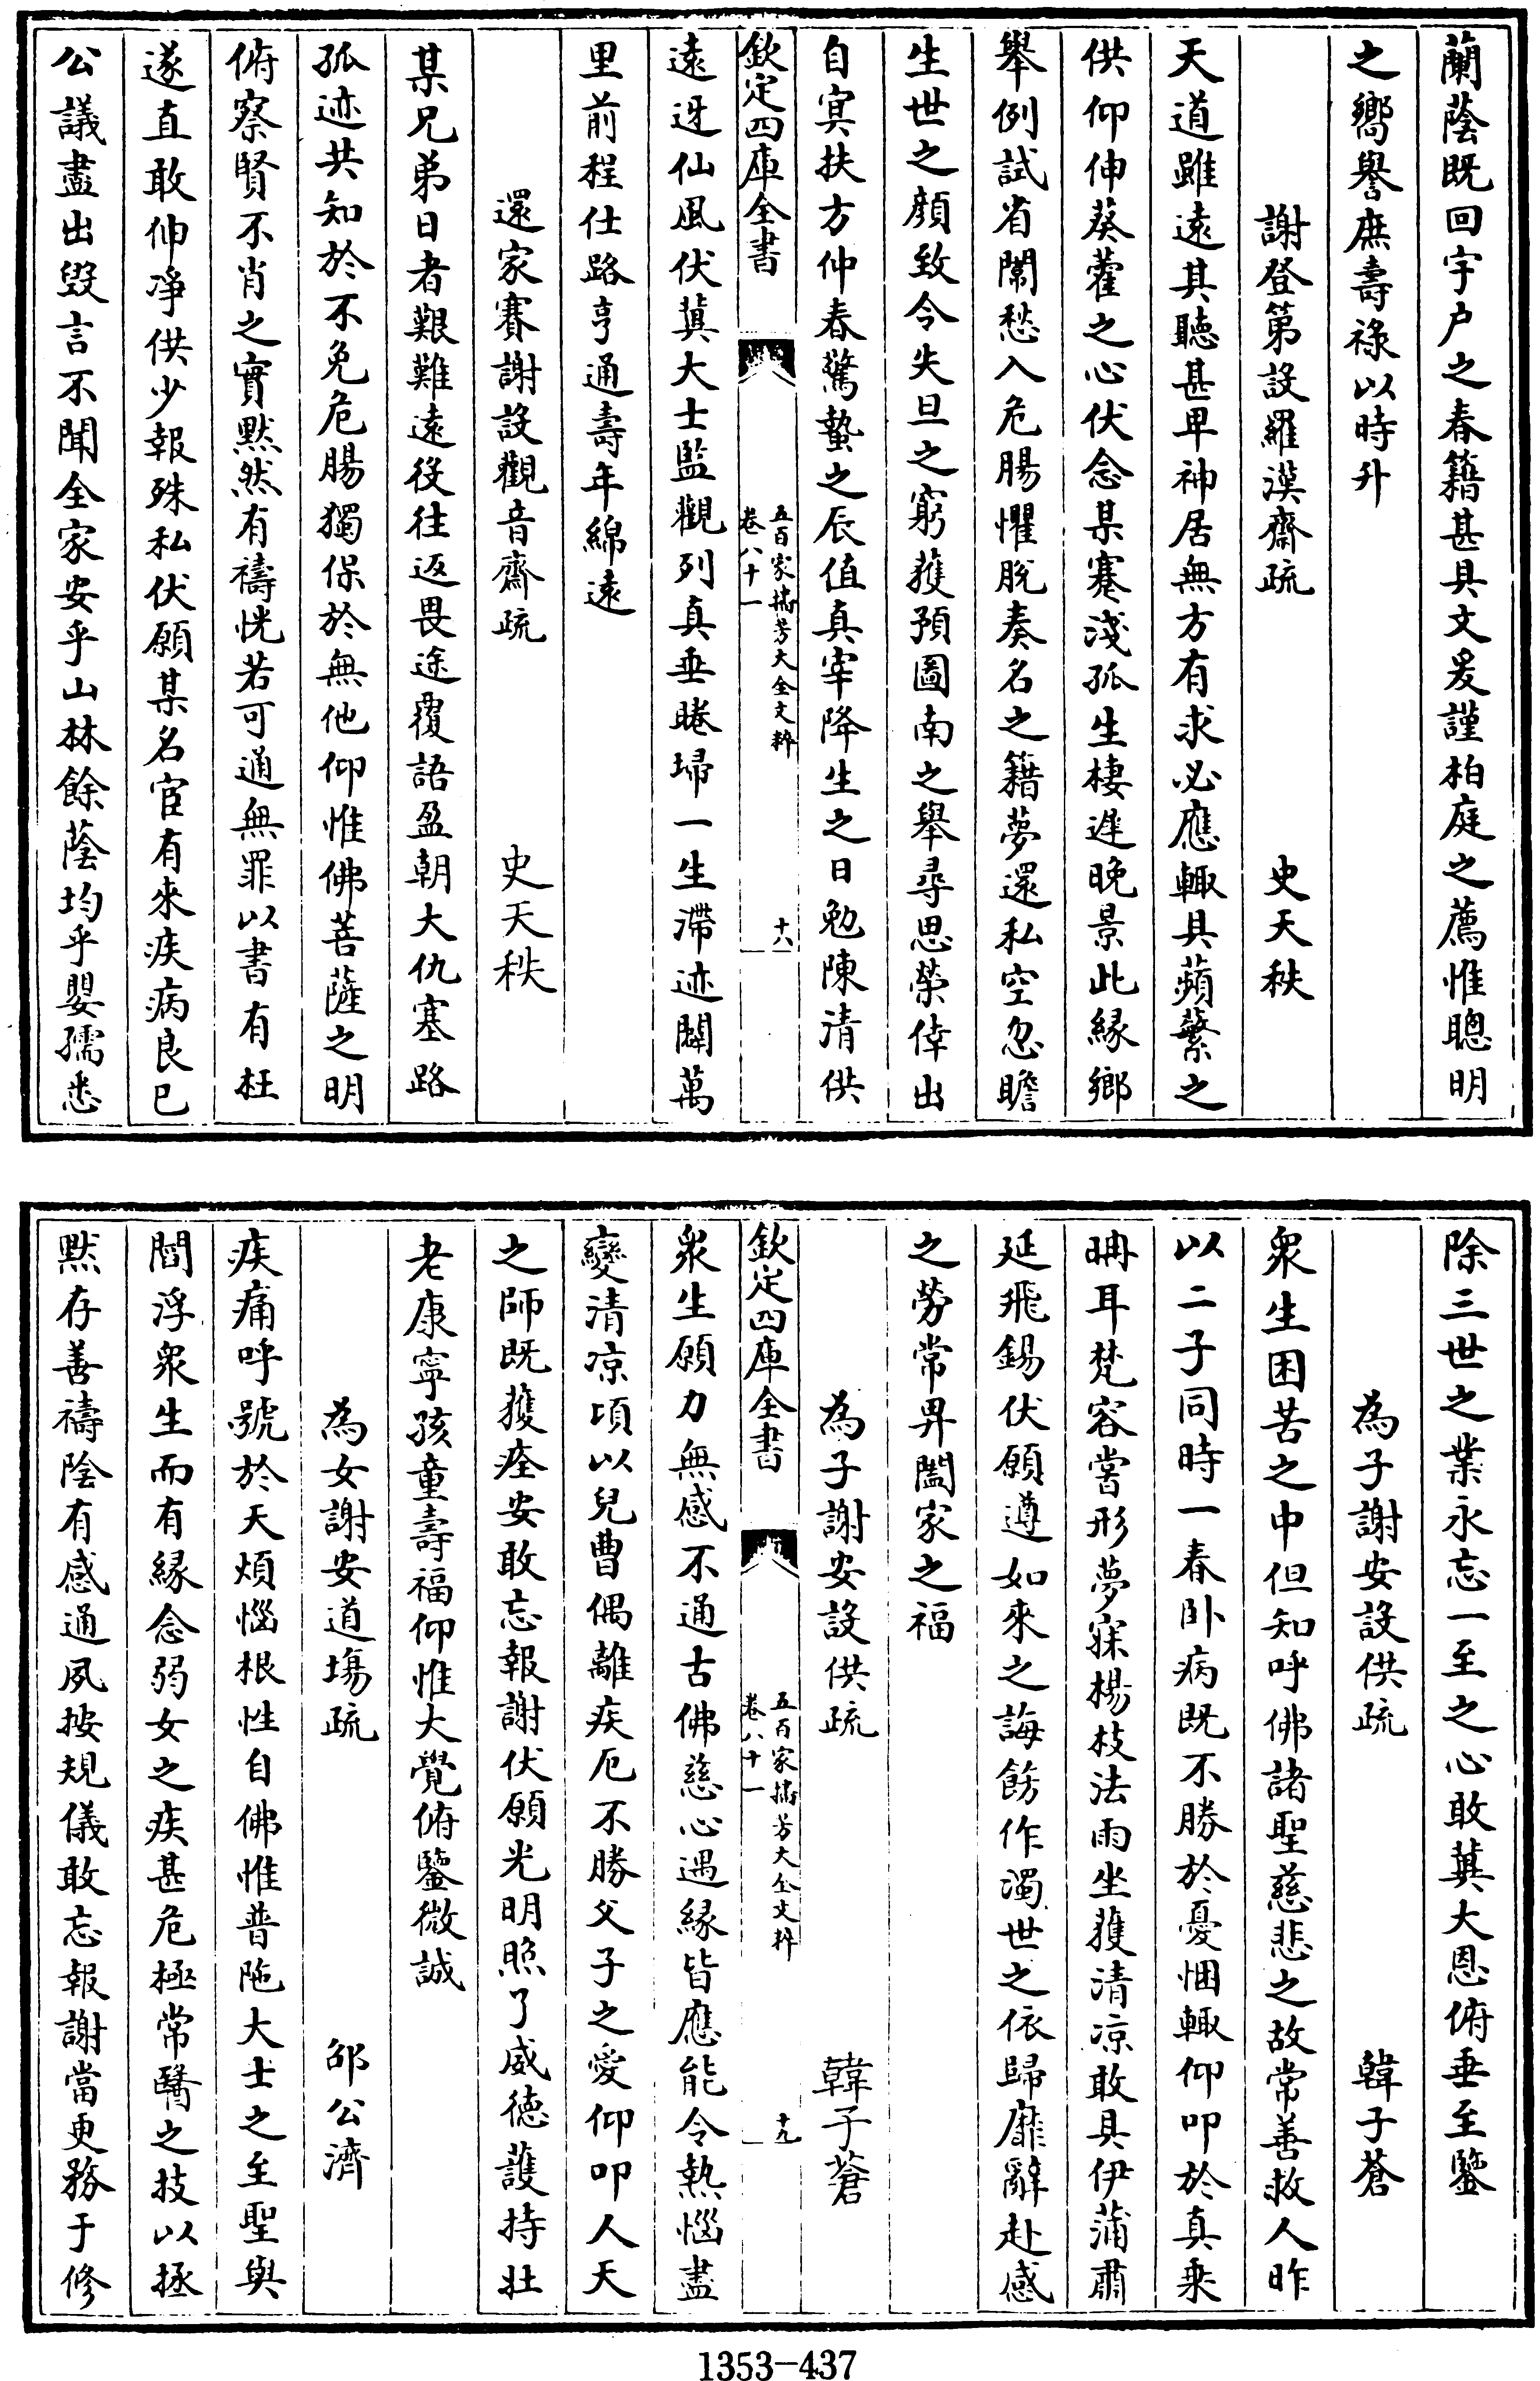 蘭蔭既回宇户之春籍甚具文爰謹柏庭之薦惟聰明
之嚮譽庶壽祿以時升
謝登第設羅漢齋疏 史天秩
天道雖逺其聽甚卑神居無方有求必應輙具蘋蘩之
供仰伸葵藿之心伏念某蹇淺孤生棲遲晚景此縁鄉
舉例試省闈愁入危腸懼脫奏名之籍夢還私空忽瞻
生世之顔致令失旦之窮獲預圖南之舉尋思榮倖出
自㝠扶方仲春驚蟄之辰值真宰降生之日勉陳清供
欽定四庫全書 五百家播芳大全文粹 卷八十一 十八
逺迓仙風伏冀大士監觀列真垂睠埽一生滯迹闢萬
里前程仕路亨通壽年綿逺
還家賽謝設觀音齋疏 史天秩
某兄弟日者艱難逺役往返畏途覆語盈朝大仇塞路
孤迹共知於不免危腸獨保於無他仰惟佛菩薩之明
俯察賢不肖之實黙然有禱恍若可通無罪以書有枉
遂直敢伸凈供少報殊私伏願某名宦有來疾病良已
公議盡出毀言不聞全家安乎山林餘蔭均乎嬰孺悉
除三世之業永忘一至之心敢冀大恩俯垂至鑒
為子謝安設供疏 韓子蒼
衆生困苦之中但知呼佛諸聖慈悲之故常善救人昨
以二子同時一春卧病既不勝於憂悃輙仰叩於真乗
𠕋耳梵容嘗形夢寐楊枝法雨坐獲清凉敢具伊蒲肅
延飛錫伏願遵如來之誨飭作濁世之依歸靡辭赴感
之勞常畀闔家之福
為子謝安設供疏 韓子蒼
欽定四庫全書 五百家播芳大全文粹 卷八十一 十九
衆生願力無感不通古佛慈心遇縁皆應能令熱惱盡
變清凉項以兒曹偶離疾厄不勝父子之愛仰叩人天
之師既獲痊安敢忘報謝伏願光明照了威徳護持壯
老康寧孩童壽福仰惟大覺俯鑒微誠
為女謝安道塲疏 邵公濟
疾痛呼號於天煩惱根性自佛惟普陁大士之至聖與
閻浮衆生而有縁念弱女之疾甚危極常醫之技以拯
黙存善禱陰有感通夙按規儀敢忘報謝當更務于修
1353-437